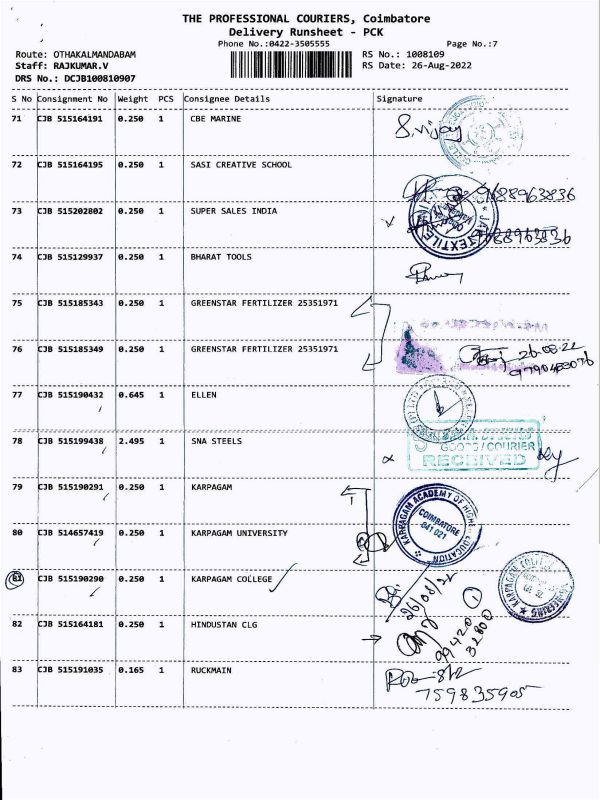 THE PROFESSIONAL COURIERS, Coimbatore
Delivery Runsheet - PCK
Phone No.:0422-3505555 Page No.:7
Route: OTHAKALMANDABAM RS No.: 1008109
Staff: RAJKUMAR.V RS Date: 26-Aug-2022
DRS No.: DCJB100810907
S No Consignment No Weight PCS Consignee Details Signature
71 CJB 515164191 0.250 1 CBE MARINE S.vijay
72 CJB 515164195 0.250 1 SASI CREATIVE SCHOOL
9688963836
73 CJB 515202802 0.250 1 SUPER SALES INDIA
TEXTILE
9688963836
74 CJB 515129937 0.250 1 BHARAT TOOLS
75 CJB 515185343 0.250 1 GREENSTAR FERTILIZER 25351971
76 CJB 515185349 0.250 1 GREENSTAR FERTILIZER 25351971 26-08-22
9790483076
77 CJB 515190432 0.645 1 ELLEN
78 CJB 515199438 2.495 1 SNA STEELS
GOODS / COURIER
RECEIVED
79 CJB 515190291 0.250 1 KARPAGAM
KARPAGAM ACADEMY OF HIGHER EDUCATION
COIMBATORE
641 021
80 CJB 514657419 0.250 1 KARPAGAM UNIVERSITY
81 CJB 515190290 0.250 1 KARPAGAM COLLEGE
26/08/22
KARPAGAM COLLEGE
82 CJB 515164181 0.250 1 HINDUSTAN CLG
1
99420
32800
83 CJB 515191035 0.165 1 RUCKMAIN
759835905